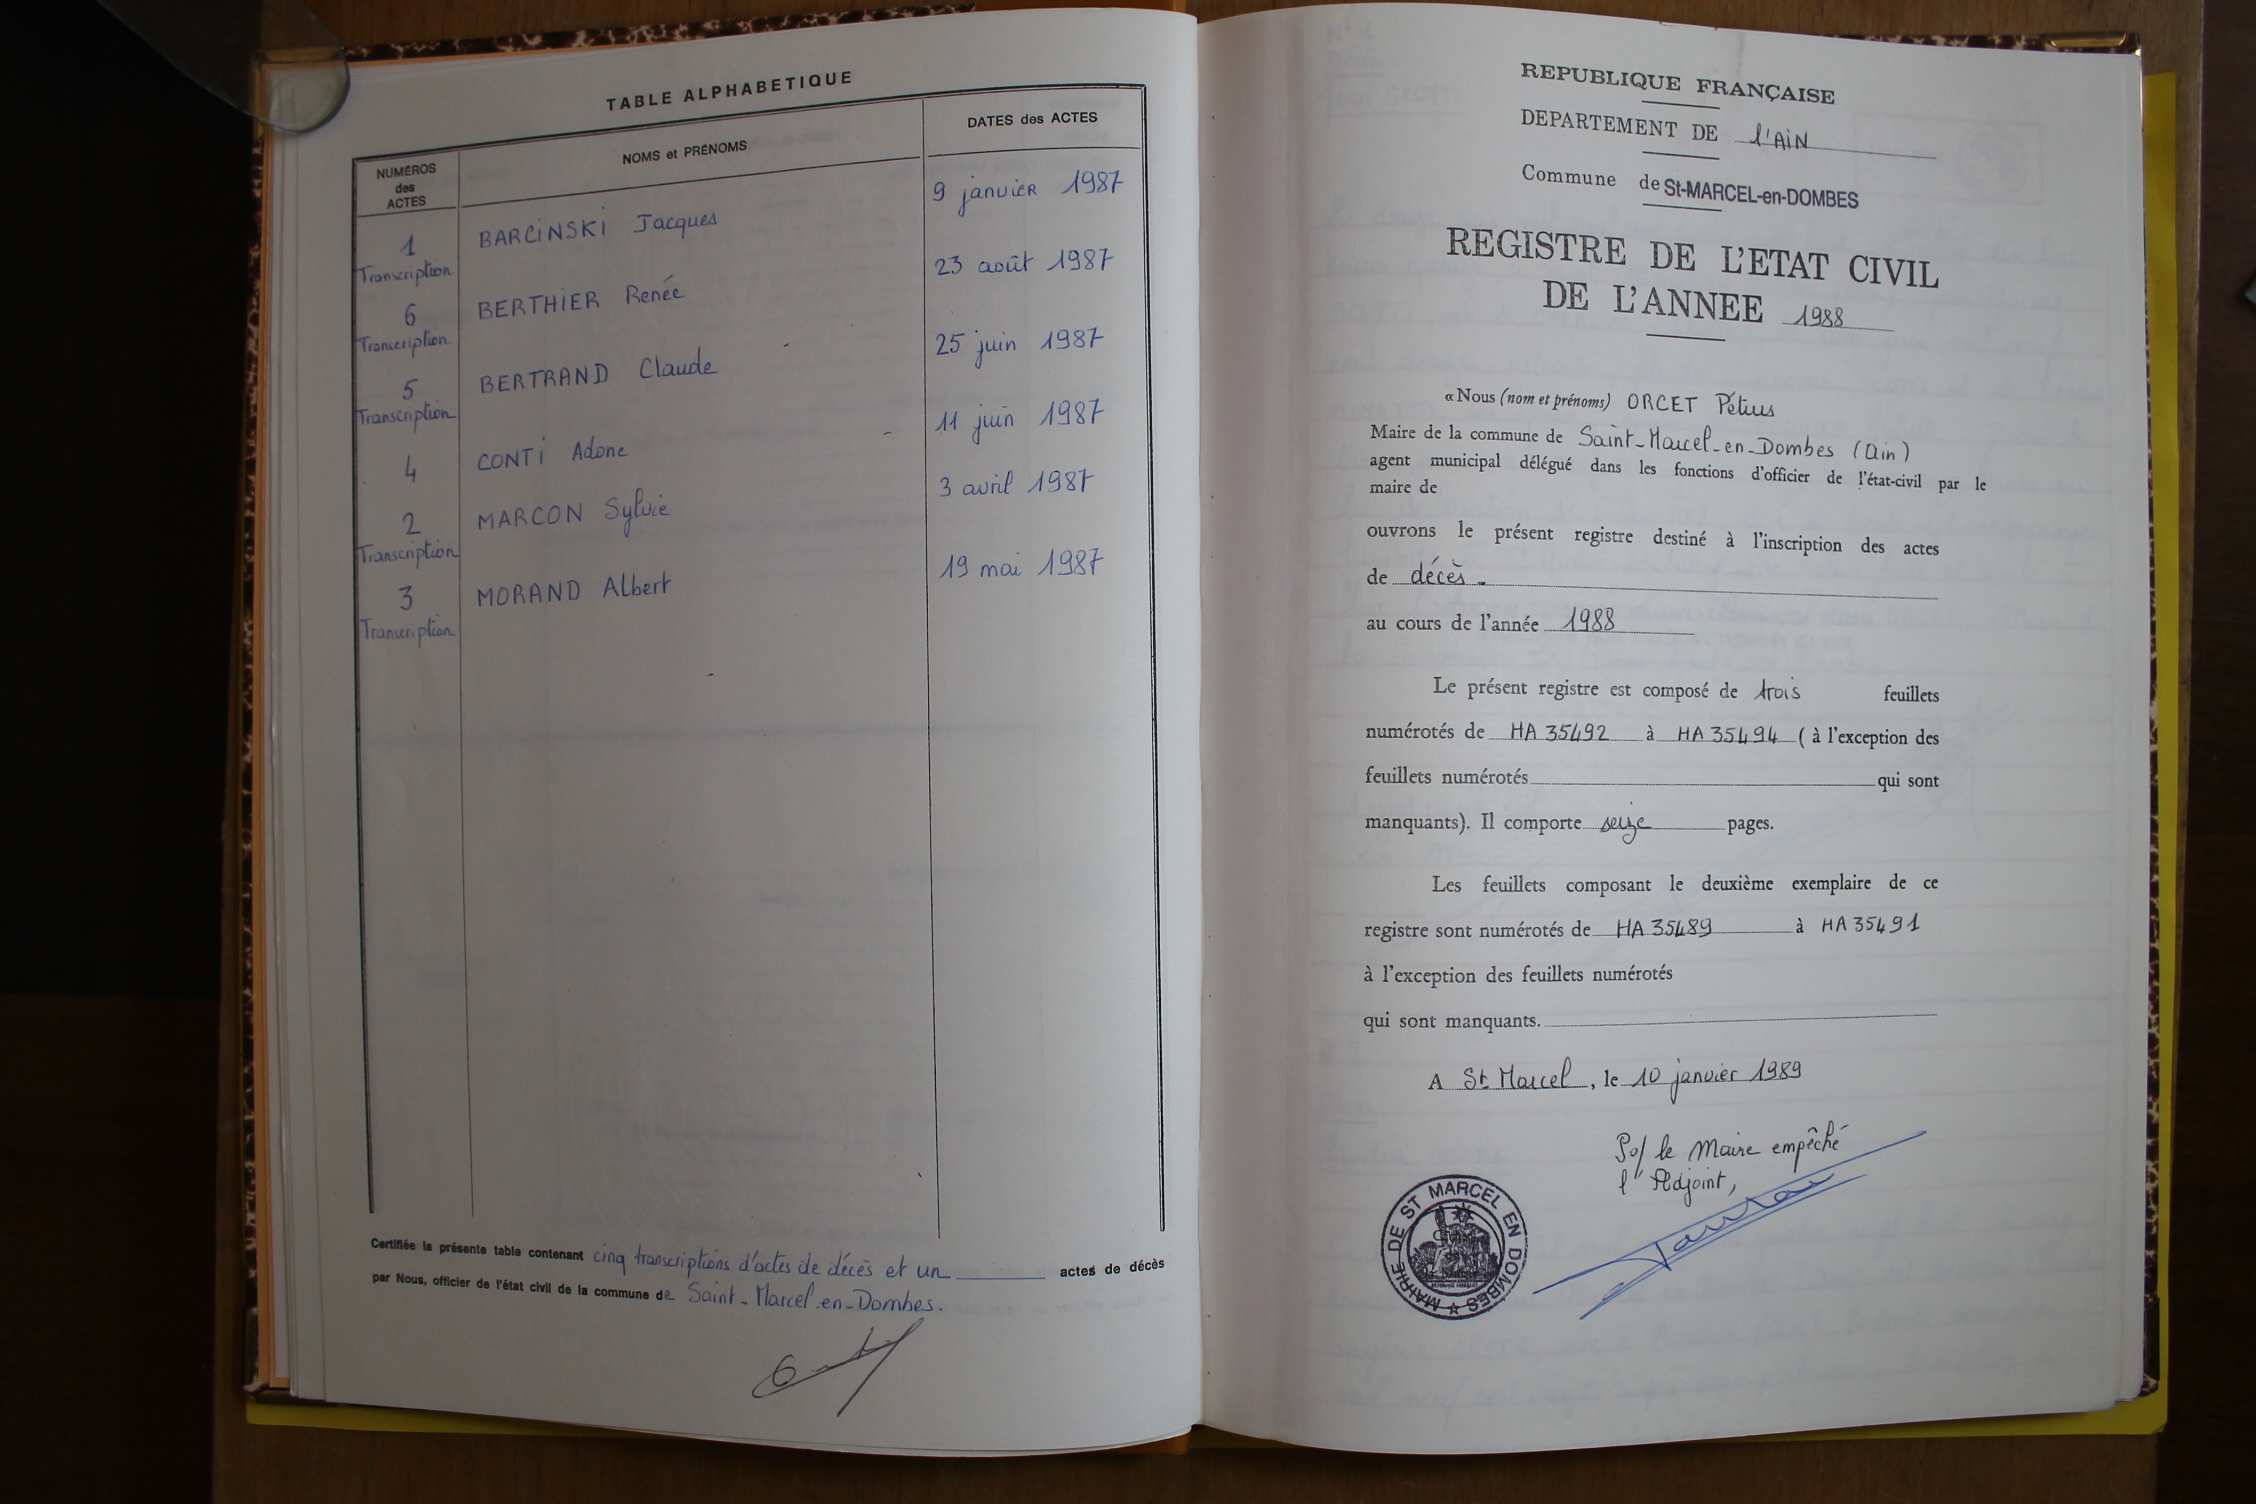 TABLE ALPHABETIQUE
NUMÉROS
des
ACTES
NOMS et PRÉNOMS
DATES des ACTES
1 BARCINSKI Jacques 9 janvier 1987
Transcription
6 BERTHIER Renée 23 août 1987
Transcription
5 BERTRAND Claude 25 juin 1987
Transcription
4 CONTI Adone 11 juin 1987
2 MARCON Sylvie 3 avril 1987
Transcription
3 MORAND Albert 19 mai 1987
Transcription
Certifiée la présente table contenant cinq transcriptions d'actes de décès et un actes de décès
par Nous, officier de l'état civil de la commune de Saint-Marcel-en-Dombes.
REPUBLIQUE FRANÇAISE
DEPARTEMENT DE l'AIN
Commune de St-MARCEL-en-DOMBES
REGISTRE DE L'ETAT CIVIL
DE L'ANNEE 1988
« Nous (nom et prénoms) ORCET Pétrus
Maire de la commune de Saint-Marcel-en-Dombes (Ain)
agent municipal délégué dans les fonctions d'officier de l'état-civil par le
maire de
ouvrons le présent registre destiné à l'inscription des actes
de décès.
au cours de l'année 1988
Le présent registre est composé de trois feuillets
numérotés de HA 35492 à HA 35494 ( à l'exception des
feuillets numérotés qui sont
manquants). Il comporte seize pages.
Les feuillets composant le deuxième exemplaire de ce
registre sont numérotés de HA 35489 à HA 35491
à l'exception des feuillets numérotés
qui sont manquants.
A St Marcel, le 10 janvier 1989
Po/ le Maire empêché
l'Adjoint,
MAIRIE DE ST MARCEL EN DOMBES